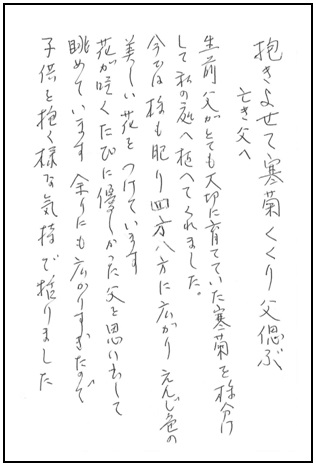 抱きよせて寒菊くくり父偲ぶ
亡き父へ
生前父がとても大切に育てていた寒菊を株分け
して私の庭へ植へてくれました。
今では株も肥り四方八方に広がりえんじ色の
美しい花をつけています
花が咲くたびに優しかった父を思い出して
眺めています 余りにも広がりすぎたので
子供を抱く様な気持で括りました